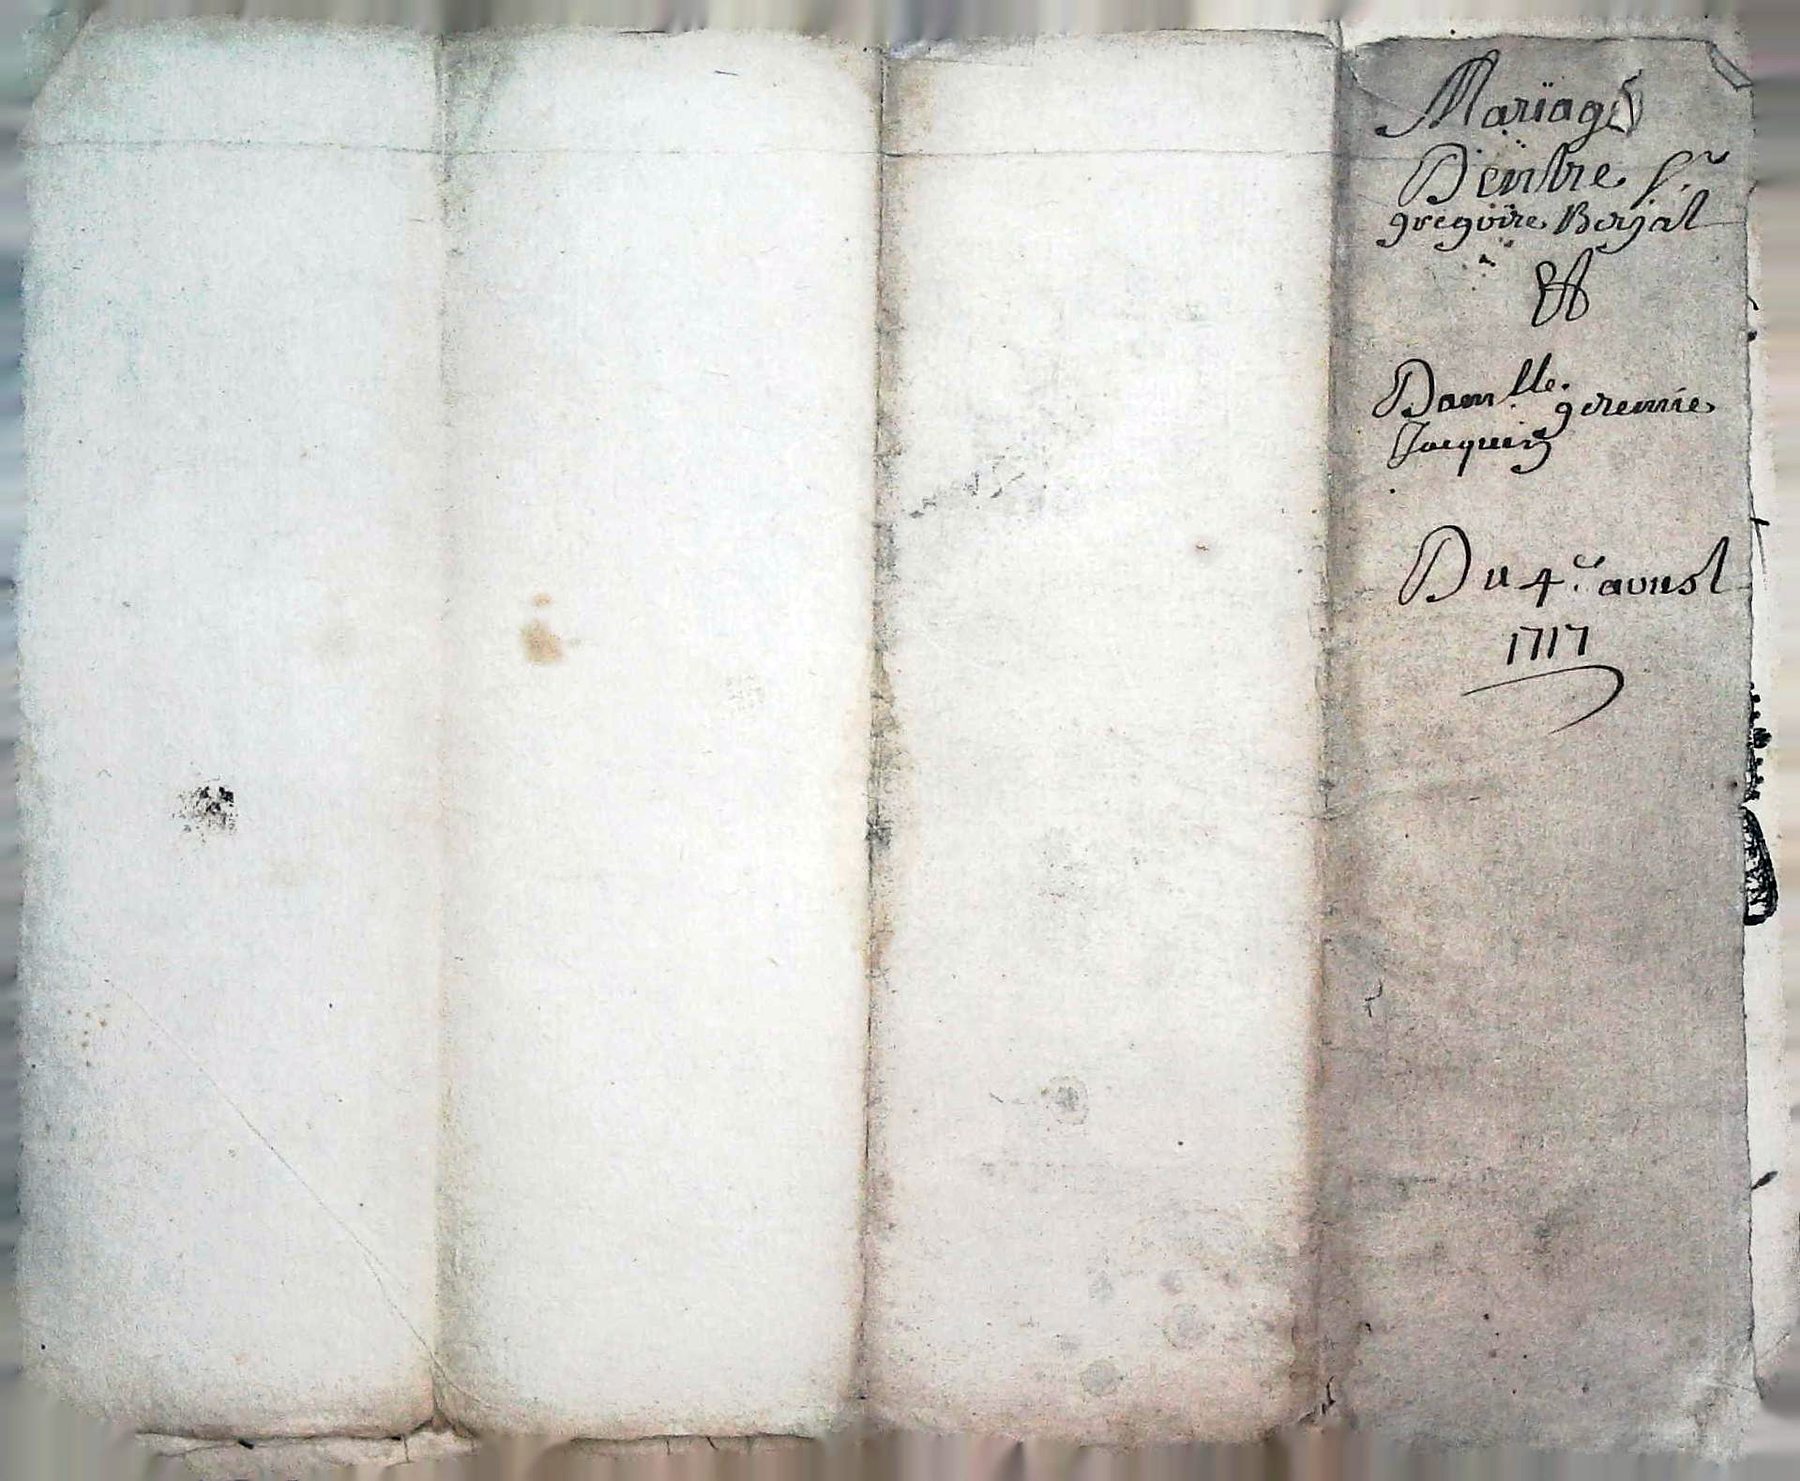 Mariage
D'entre Sr
gregoire Borjal
Et
Damlle geremie
Jacquin
Du 4e avrisl
1717